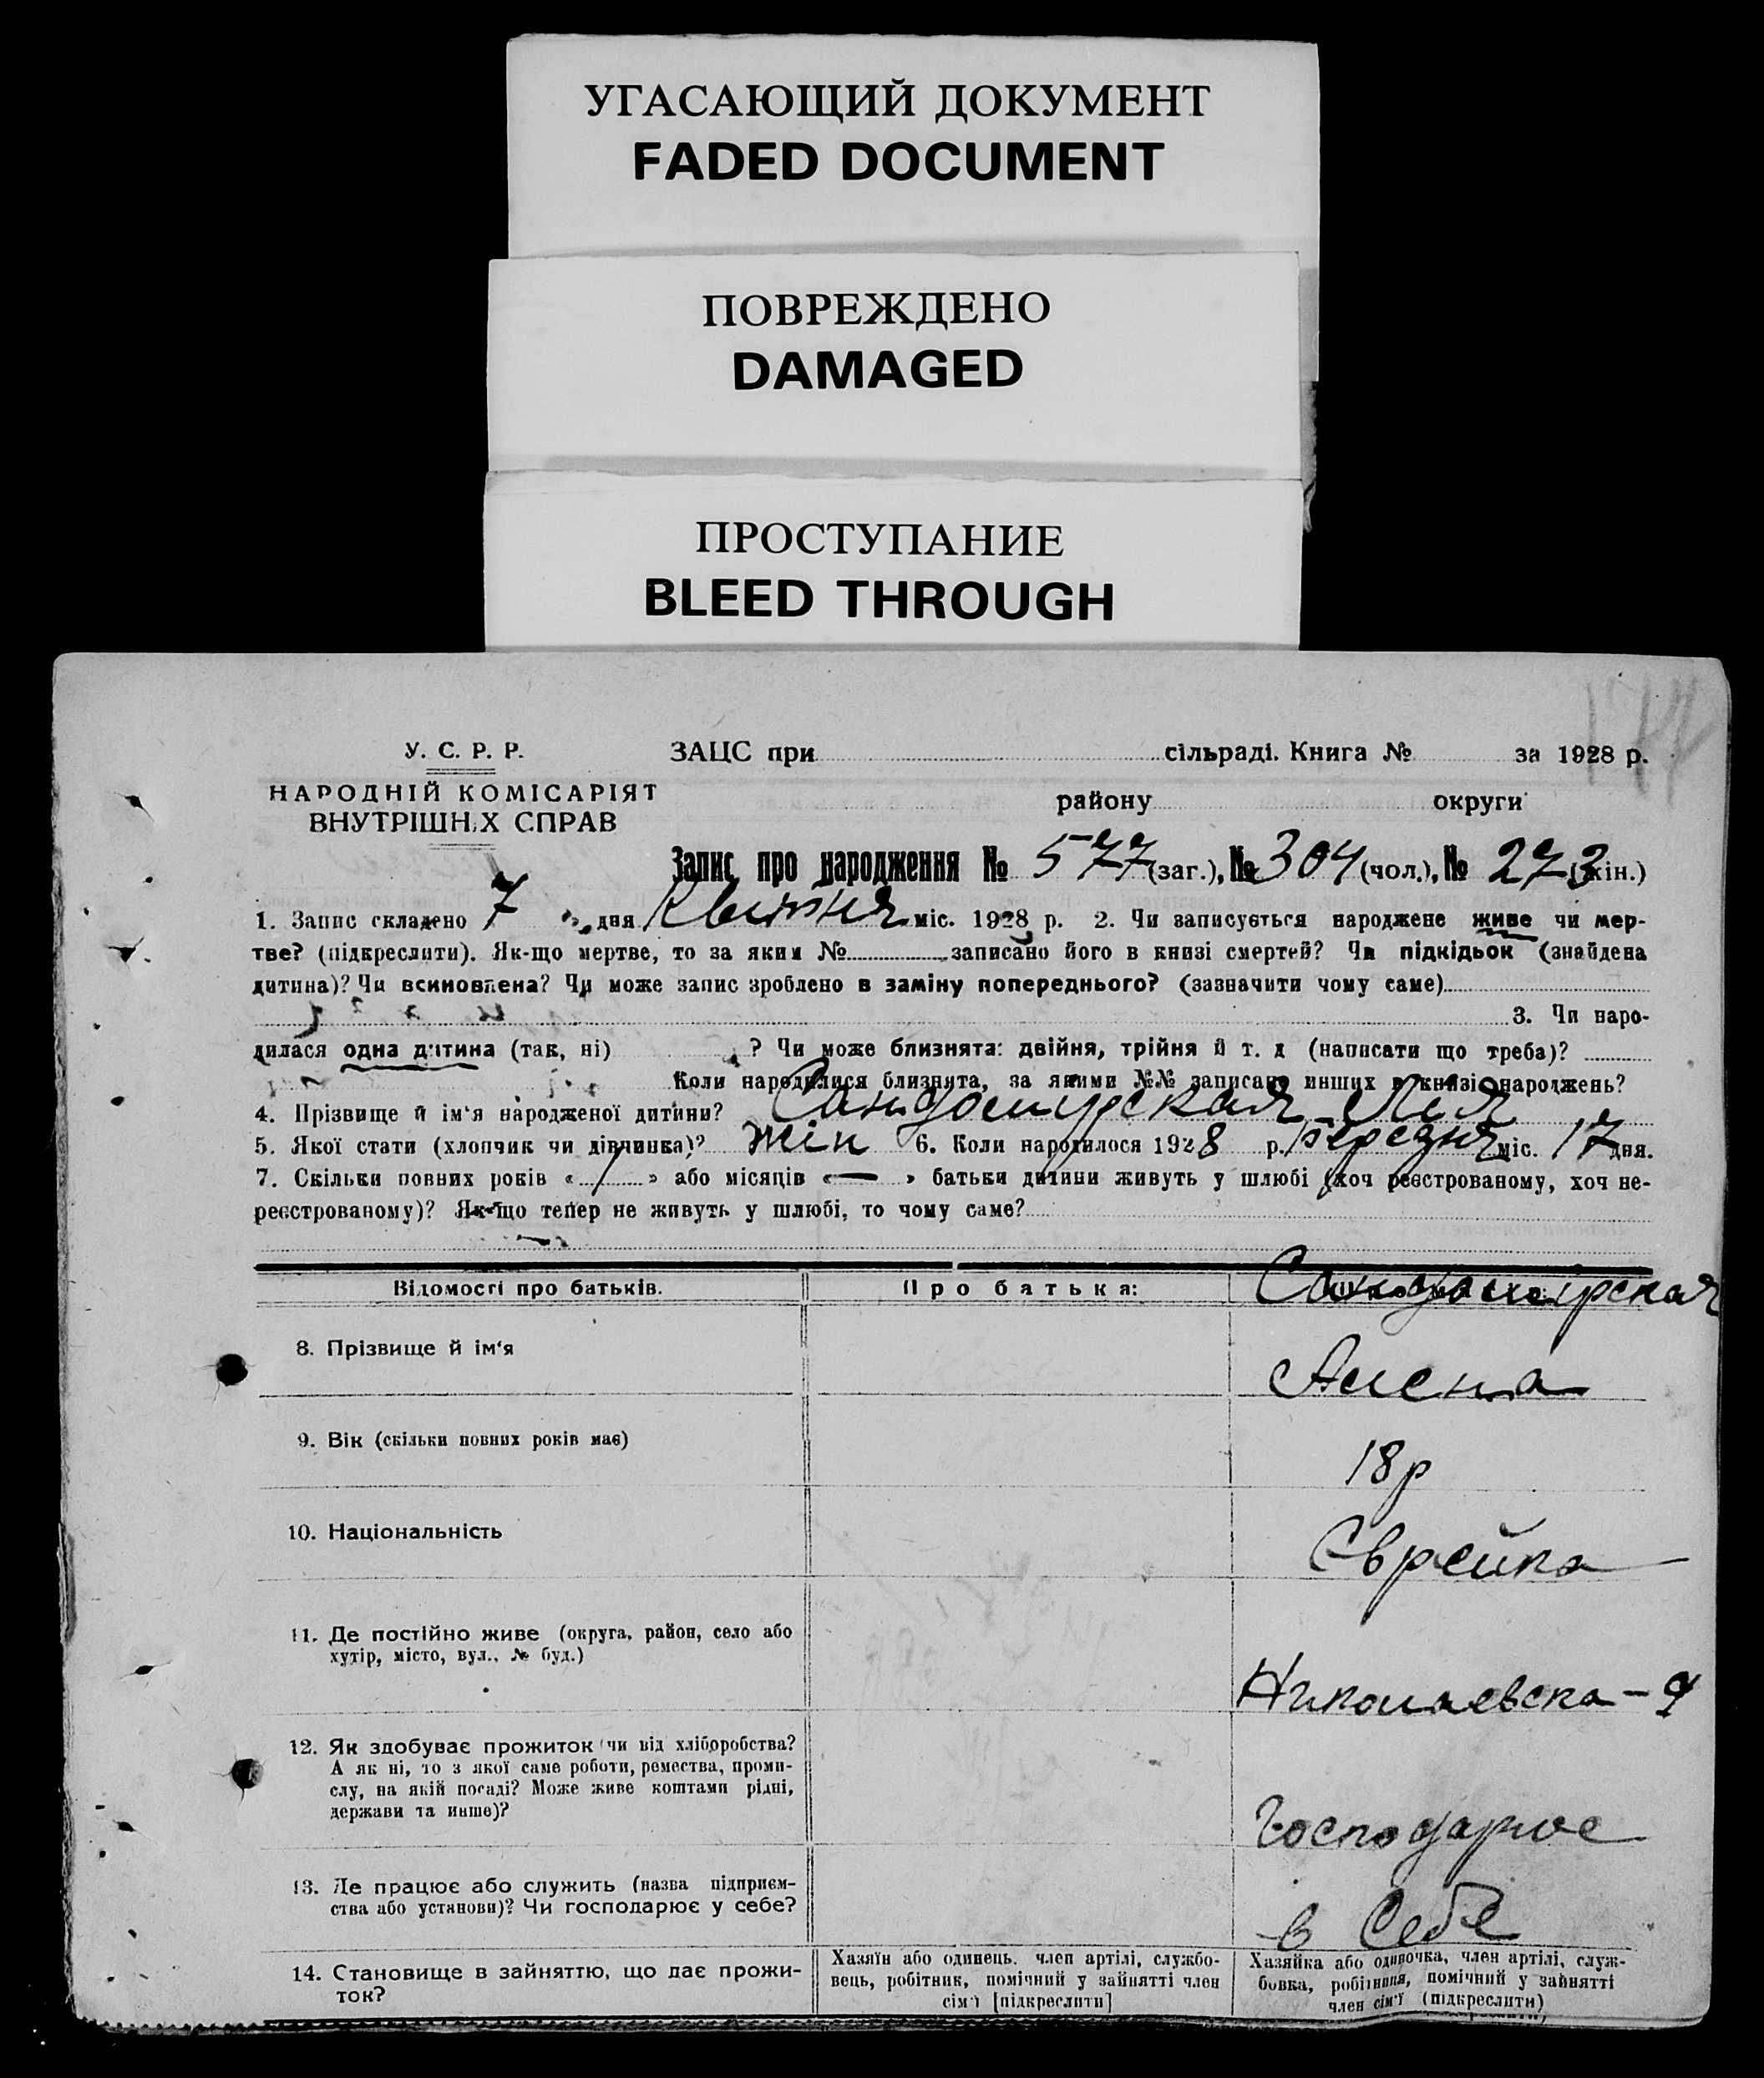 УГАСАЮЩИЙ ДОКУМЕНТ
FADED DOCUMENT
ПОВРЕЖДЕНО
DAMAGED
ПРОСТУПАНИЕ
BLEED THROUGH
У. С. Р. Р.
НАРОДНІЙ КОМІСАРІЯТ
ВНУТРІШНІХ СПРАВ
ЗАЦС при сільраді. Книга № за 1928 р.
району округи
Запис про народження № 577 (заг.), № 304 (чол.), № 273 (жін.)
1. Запис складено 7 дня Квітня міс. 1928 р. 2. Чи записується народжене живе чи мер-
тве? (підкреслити). Як-що мертве, то за яким № записано його в книзі смертей? Чи підкідьок (знайдена
дитина)? Чи всиновлена? Чи може запис зроблено в заміну попереднього? (зазначити чому саме)
3. Чи наро-
дилася одна дитина (так, ні) ? Чи може близнята: двійня, трійня й т. д (написати що треба)?
Коли народилися близнята, за якими №№ записано инших в книзі народжень?
4. Прізвище й ім'я народженої дитини? Сандомирская Лия
5. Якої стати (хлопчик чи дівчинка)? жін 6. Коли народилося 1928 р. березня міс. 17 дня.
7. Скільки повних років « 1 » або місяців « — » батьки дитини живуть у шлюбі (хоч реєстрованому, хоч не-
реєстрованому)? Як-що тепер не живуть у шлюбі, то чому саме?
Відомості про батьків.
Про батька:
Сандомірская
8. Прізвище й ім'я
9. Вік (скільки повних років має)
18 р
10. Національність
Єврейка
11. Де постійно живе (округа, район, село або
хутір, місто, вул., № буд.)
Николаевска - 9
12. Як здобуває прожиток (чи від хліборобства?
А як ні, то з якої саме роботи, ремества, проми-
слу, на якій посаді? Може живе коштами рідні,
держави та инше)?
Господарює
13. Де працює або служить (назва підприєм-
ства або установи)? Чи господарює у себе?
в Себе
14. Становище в зайняттю, що дає прожи-
ток?
Хазяїн або одинець. член артілі, службо-
вець, робітник, помічний у зайнятті член
сім'ї [підкреслити]
Хазяйка або одиночка, член артілі, служ-
бовка, робітниця, помічний у зайнятті
член сім'ї (підкреслити)